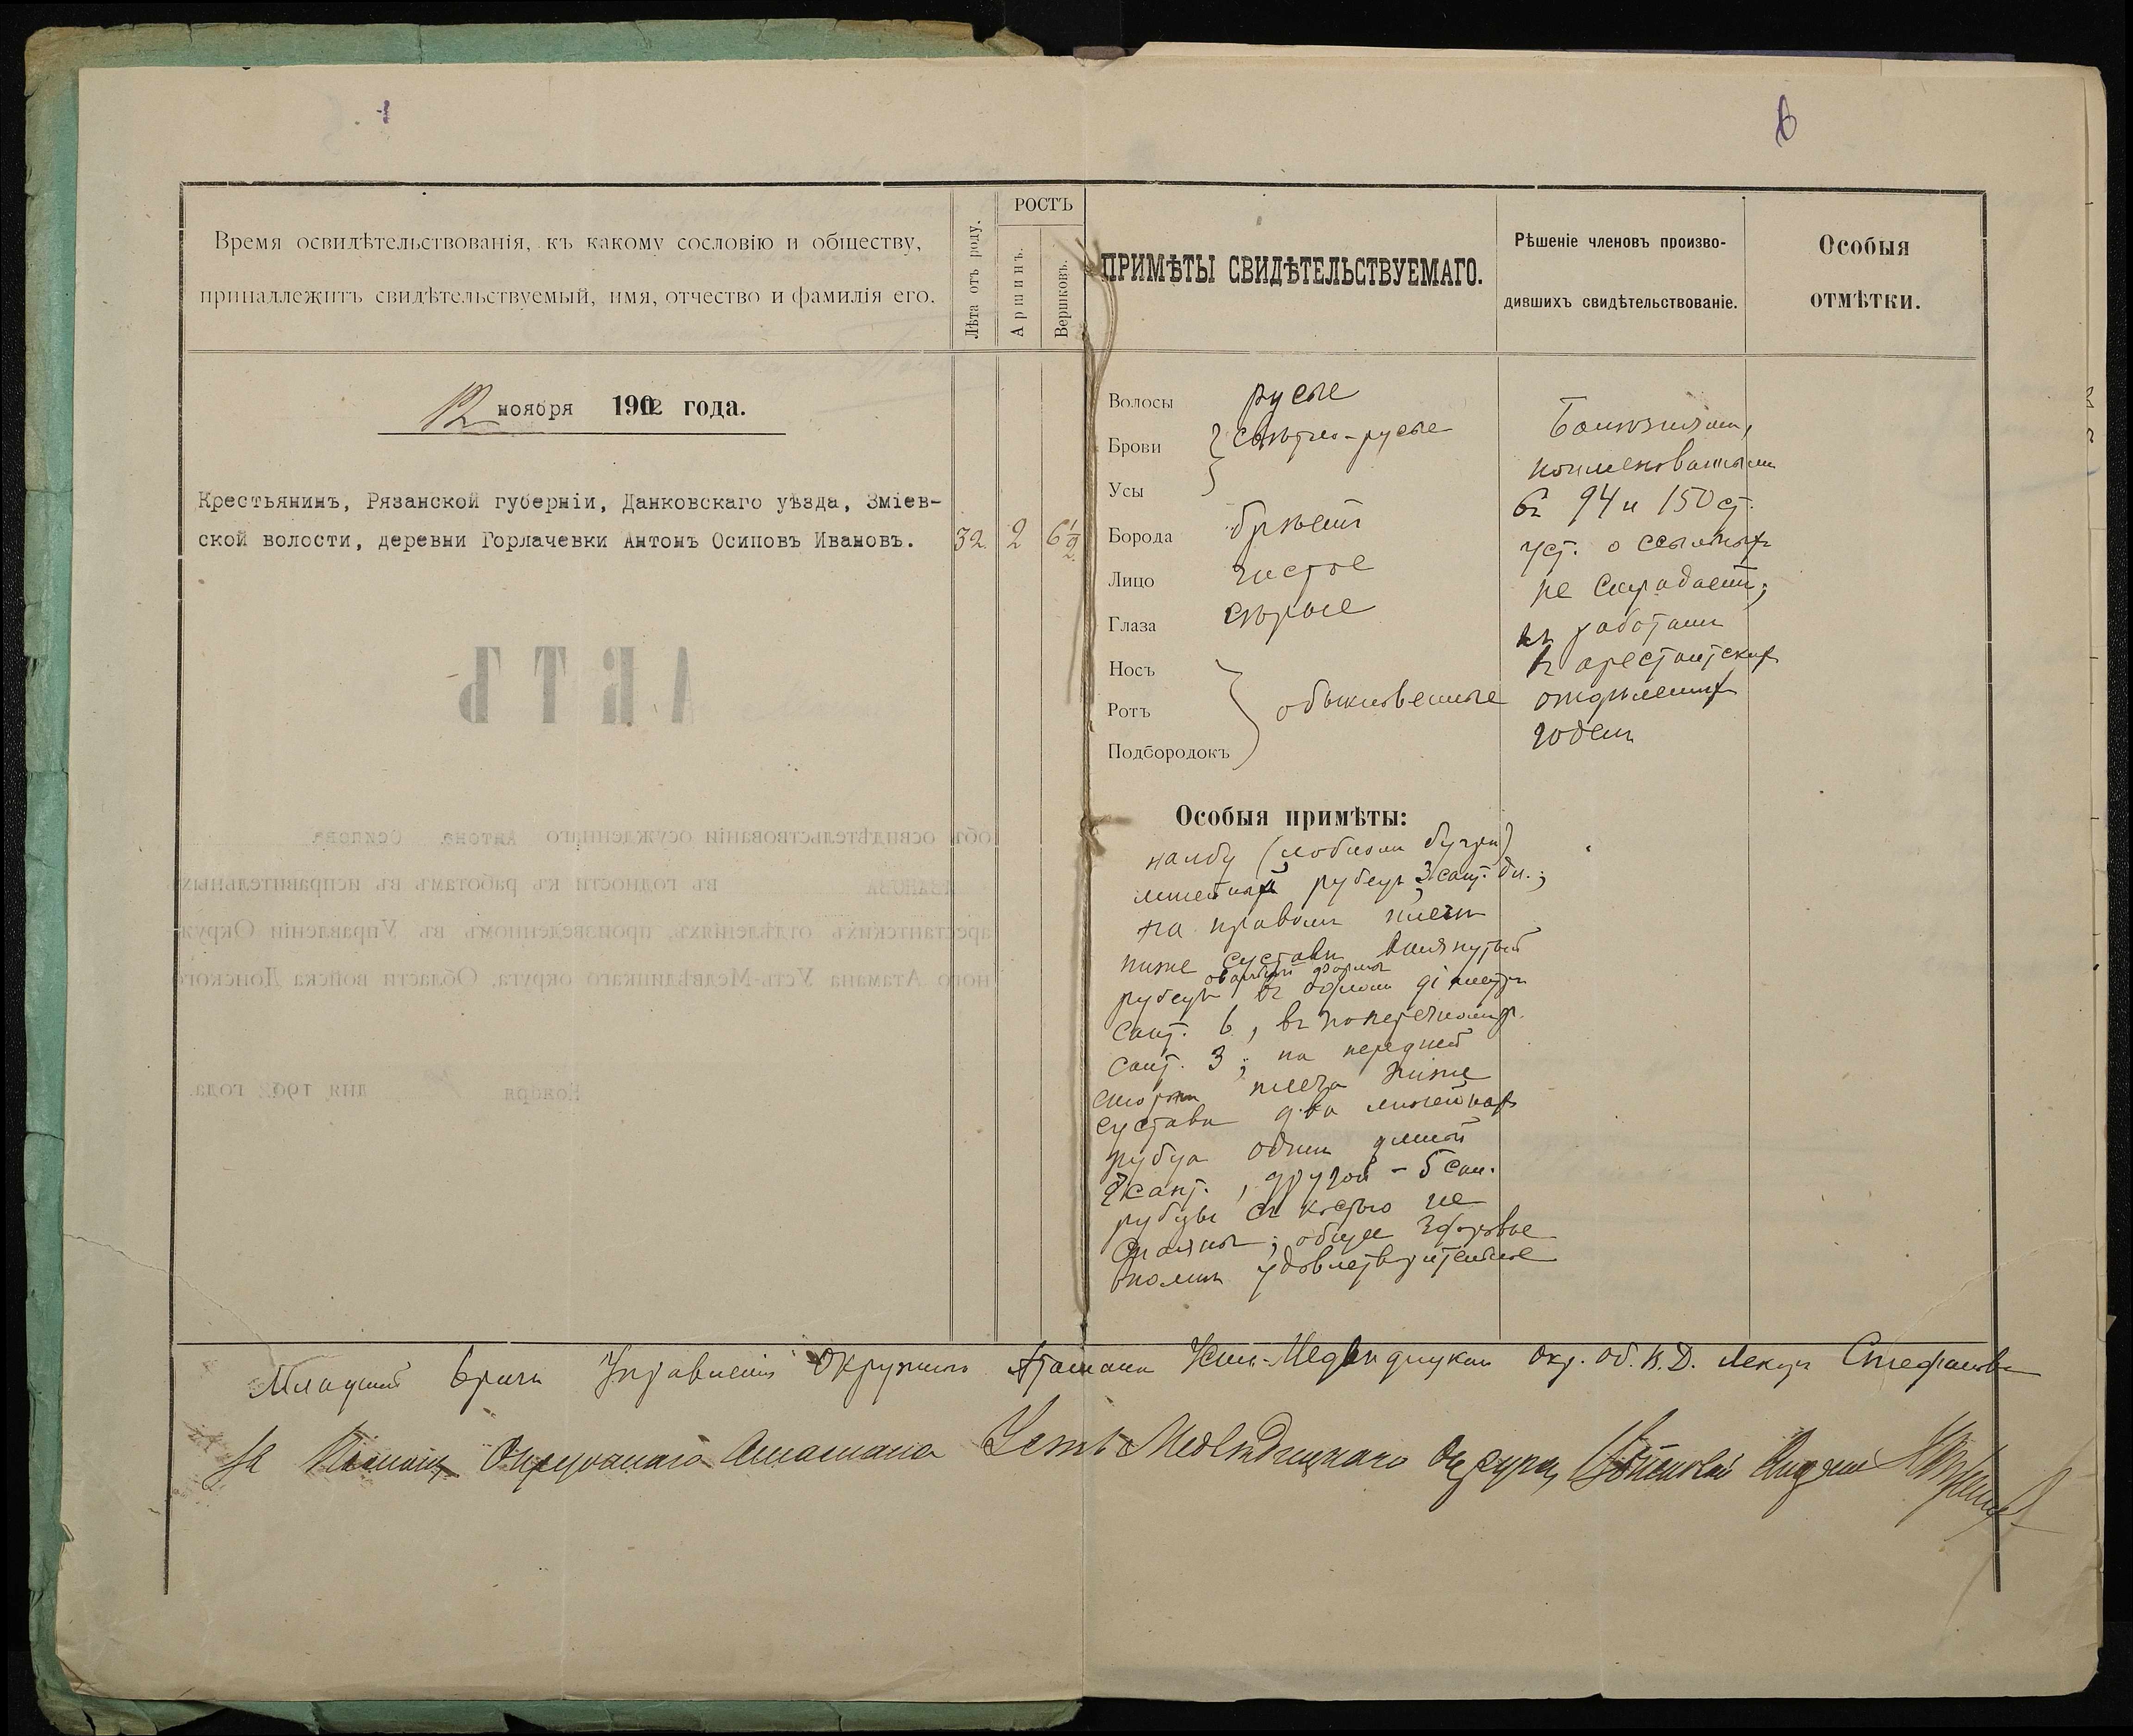 РОСТЪ
Время освидѣтельствованія, къ какому сословію и обществу,
принадлежитъ свидѣтельствуемый, имя, отчество и фамилія его.
Лѣта отъ роду.
Аршинъ.
Вершковъ.
ПРИМѢТЫ СВИДѢТЕЛЬСТВУЕМАГО.
Рѣшеніе членовъ произво-
дившихъ свидѣтельствованіе.
Особыя
отмѣтки.
12 ноября 1902 года.
Крестьянинъ, Рязанской губерніи, Данковскаго уѣзда, Зміев-
ской волости, деревни Горлачевки Антонъ Осиповъ Ивановъ.
32. 2 6 1/2
Волосы русые
Брови свѣтло-русые
Усы
Борода брѣетъ
Лицо чистое
Глаза сѣрые
Носъ
Ротъ обыкновенные
Подбородокъ
Болѣзнями,
поименованными
въ 94 и 150 ст.
уст. о ссыльныхъ
не страдаетъ;
къ работамъ
въ арестантскихъ
отдѣленіяхъ
годенъ
Особыя примѣты:
на лбу (лобномъ бугрѣ)
линейный рубецъ 3 сант. дл.;
на правомъ плечѣ
ниже сустава втянутый
овальной формы
рубецъ въ одномъ діаметрѣ
сант. 6, въ поперечномъ
сант. 3; на передней
сторонѣ плеча ниже
сустава два линейныхъ
рубца одинъ длиной
сант., другой - 5 сан.
рубцы съ костью не
спаяны; общее здоровье
вполнѣ удовлетворительное
Младшій врачъ Управленія Окружного Атамана Усть-Медвѣдицкаго окр. Об. В. Д. Лекарь Стефановъ
Окружнаго Атамана Усть Медвѣдицкаго Округа,
АКТЪ
объ освидѣтельствованіи осужденнаго Антона Осипова
Иванова въ годности къ работамъ въ исправительныхъ
арестантскихъ отдѣленіяхъ, произведенномъ въ Управленіи Окруж-
ного Атамана Усть-Медвѣдицкаго округа, Области войска Донского
Ноября дня 1902 года.